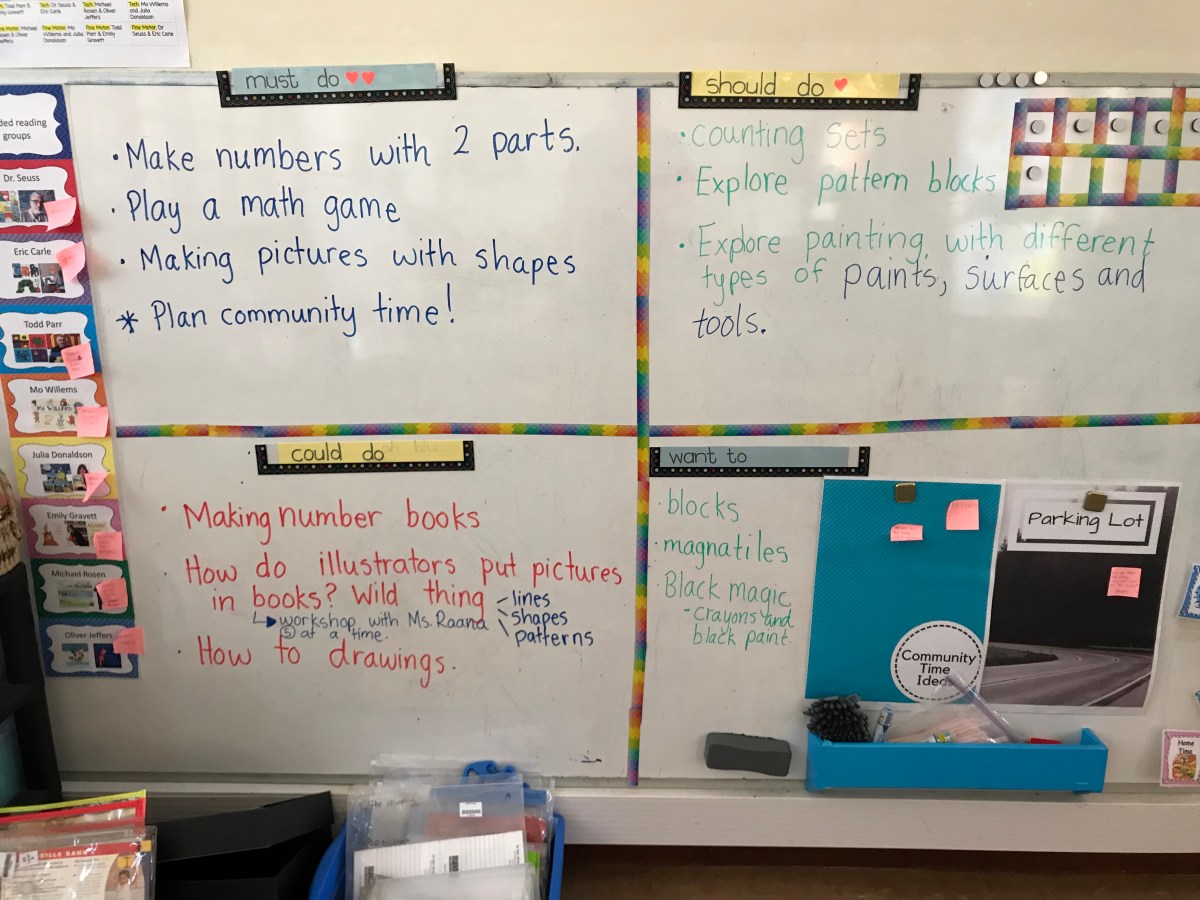 Tech: Dr. Seuss & Eric Carle
Tech: Michael Rosen & Oliver Jeffers
Tech: Mo Willems and Julia Donaldson
Fine Motor: Mo Willems and Julia Donaldson
Fine Motor: Todd Parr & Emily Gravett
Fine Motor: Dr. Seuss & Eric Carle
reading
groups
Dr. Seuss
Eric Carle
Todd Parr
Mo Willems
Julia Donaldson
Emily Gravett
Michael Rosen
Oliver Jeffers
must do
• Make numbers with 2 parts.
• Play a math game
• Making pictures with shapes
* Plan community time!
should do
• counting sets
• Explore pattern blocks
• Explore painting with different
types of paints, surfaces and
tools.
could do
• Making number books
• How do illustrators put pictures
in books? Wild thing
lines
shapes
patterns
workshop with Ms. Raana
5 at a time.
• How to drawings.
want to
• blocks
• magnatiles
• Black magic
- crayons and
black paint.
Community
Time
Ideas
Parking Lot
Home
Time